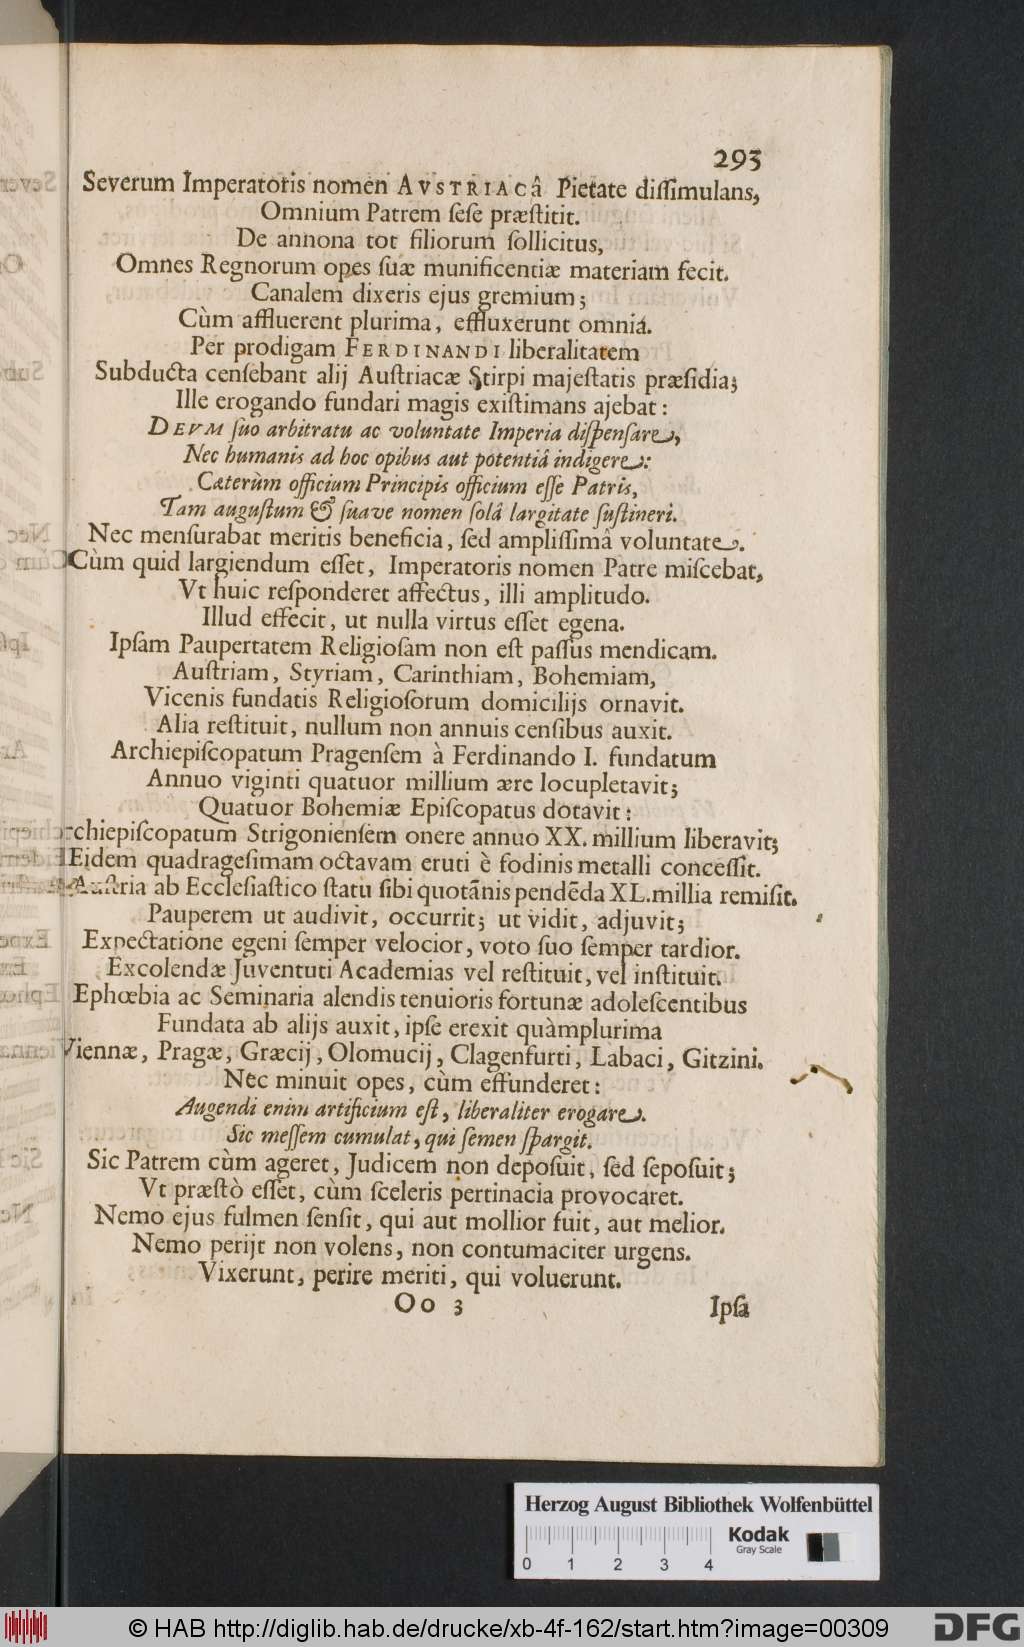 293
Severum Imperatoris nomen AVSTRIACâ Pietate diſſimulans,
Omnium Patrem ſeſe præſtitit.
De annona tot filiorum ſollicitus,
Omnes Regnorum opes ſuæ munificentiæ materiam fecit.
Canalem dixeris ejus gremium;
Cùm affluerent plurima, effluxerunt omnia.
Per prodigam FERDINANDI liberalitatem
Subducta cenſebant alij Auſtriacæ Stirpi majeſtatis præſidia;
Ille erogando fundari magis exiſtimans ajebat:
DEVM ſuo arbitratu ac voluntate Imperia diſpenſare,
Nec humanis ad hoc opibus aut potentiâ indigere:
Cæterùm officium Principis officium eſſe Patris,
Tam auguſtum & ſuave nomen ſolâ largitate ſuſtineri.
Nec menſurabat meritis beneficia, ſed ampliſſimâ voluntate.
Cùm quid largiendum eſſet, Imperatoris nomen Patre miſcebat,
Vt huic reſponderet affectus, illi amplitudo.
Illud effecit, ut nulla virtus eſſet egena.
Ipſam Paupertatem Religioſam non eſt paſſus mendicam.
Auſtriam, Styriam, Carinthiam, Bohemiam,
Vicenis fundatis Religioſorum domicilijs ornavit.
Alia reſtituit, nullum non annuis cenſibus auxit.
Archiepiſcopatum Pragenſem à Ferdinando I. fundatum
Annuo viginti quatuor millium ære locupletavit;
Quatuor Bohemiæ Epiſcopatus dotavit:
rchiepiſcopatum Strigonienſem onere annuo XX. millium liberavit;
Eidem quadrageſimam octavam eruti è fodinis metalli conceſſit.
Auſtria ab Eccleſiaſtico ſtatu ſibi quotãnis pendẽda XL. millia remiſit.
Pauperem ut audivit, occurrit; ut vidit, adjuvit;
Expectatione egeni ſemper velocior, voto ſuo ſemper tardior.
Excolendæ Juventuti Academias vel reſtituit, vel inſtituit.
Ephœbia ac Seminaria alendis tenuioris fortunæ adoleſcentibus
Fundata ab alijs auxit, ipſe erexit quàmplurima
Viennæ, Pragæ, Græcij, Olomucij, Clagenfurti, Labaci, Gitzini.
Nec minuit opes, cùm effunderet:
Augendi enim artificium eſt, liberaliter erogare.
Sic meſſem cumulat, qui ſemen ſpargit.
Sic Patrem cùm ageret, Judicem non depoſuit, ſed ſepoſuit;
Vt præſtò eſſet, cùm ſceleris pertinacia provocaret.
Nemo ejus fulmen ſenſit, qui aut mollior fuit, aut melior.
Nemo perijt non volens, non contumaciter urgens.
Vixerunt, perire meriti, qui voluerunt.
Oo 3 Ipſa
Herzog August Bibliothek Wolfenbüttel
0 1 2 3 4
Kodak
Gray Scale
© HAB http://diglib.hab.de/drucke/xb-4f-162/start.htm?image=00309
DFG